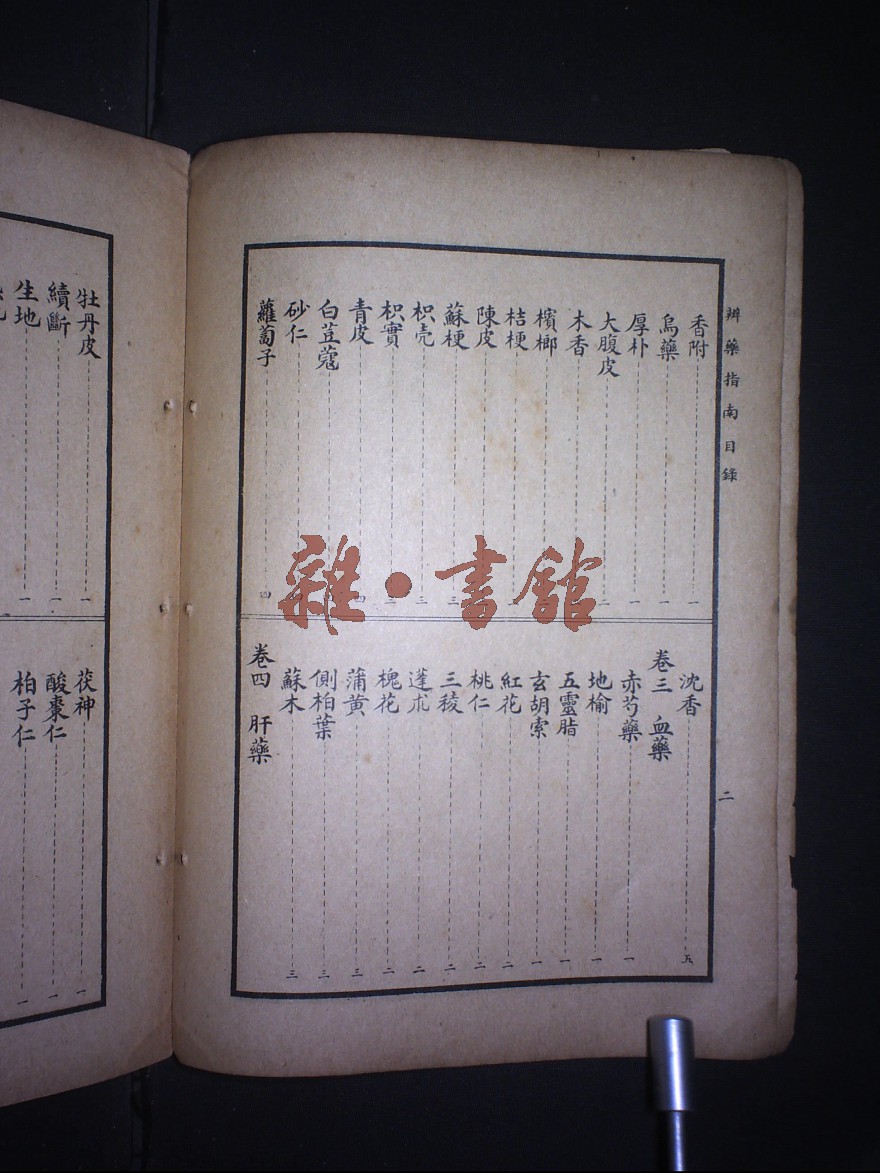 辨藥指南目錄
二
香附 一
烏藥 一
厚朴 一
大腹皮 二
木香
檳榔
桔梗
陳皮
蘇梗 三
枳壳 三
枳實 三
青皮 四
白荳蔻
砂仁
蘿蔔子 四
沈香 五
卷三 血藥
赤芍藥 一
地榆 一
五靈脂 一
玄胡索 一
紅花 二
桃仁 二
三稜 二
蓬朮 二
槐花 二
蒲黃 三
側柏葉 三
蘇木 三
卷四 肝藥
牡丹皮 一
續斷 一
生地 一
茯神 一
酸棗仁 一
柏子仁 一
雜·書舘